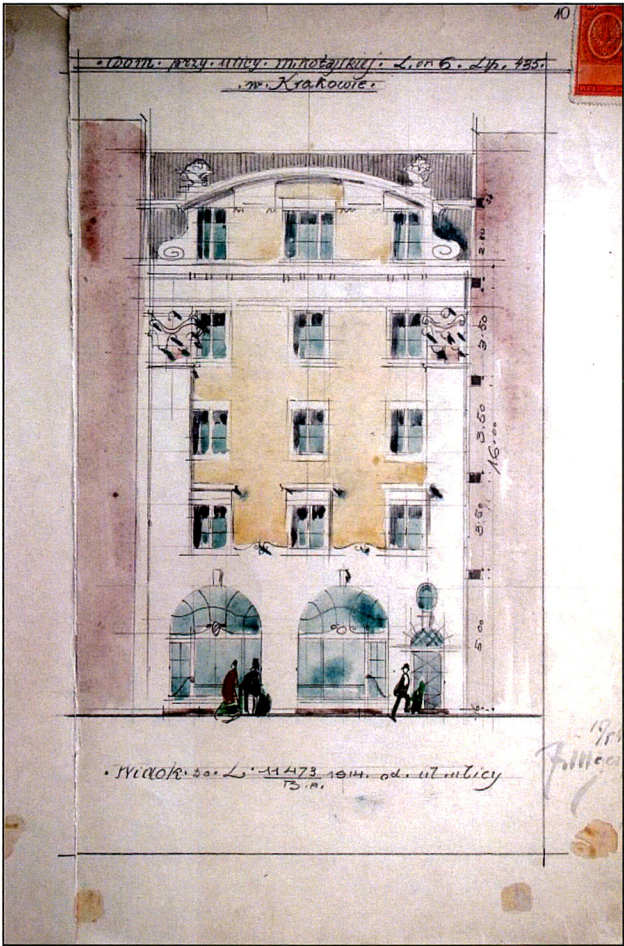 10
• Dom • przy • ulicy • mikołajskiej • L. or 6 • Lp. 435 •
• w • Krakowie •
2.80
3.50
3.50
16.00
3.50
5.00
• Widok • do • L • 11473 1914 • od • ulicy
B.a.